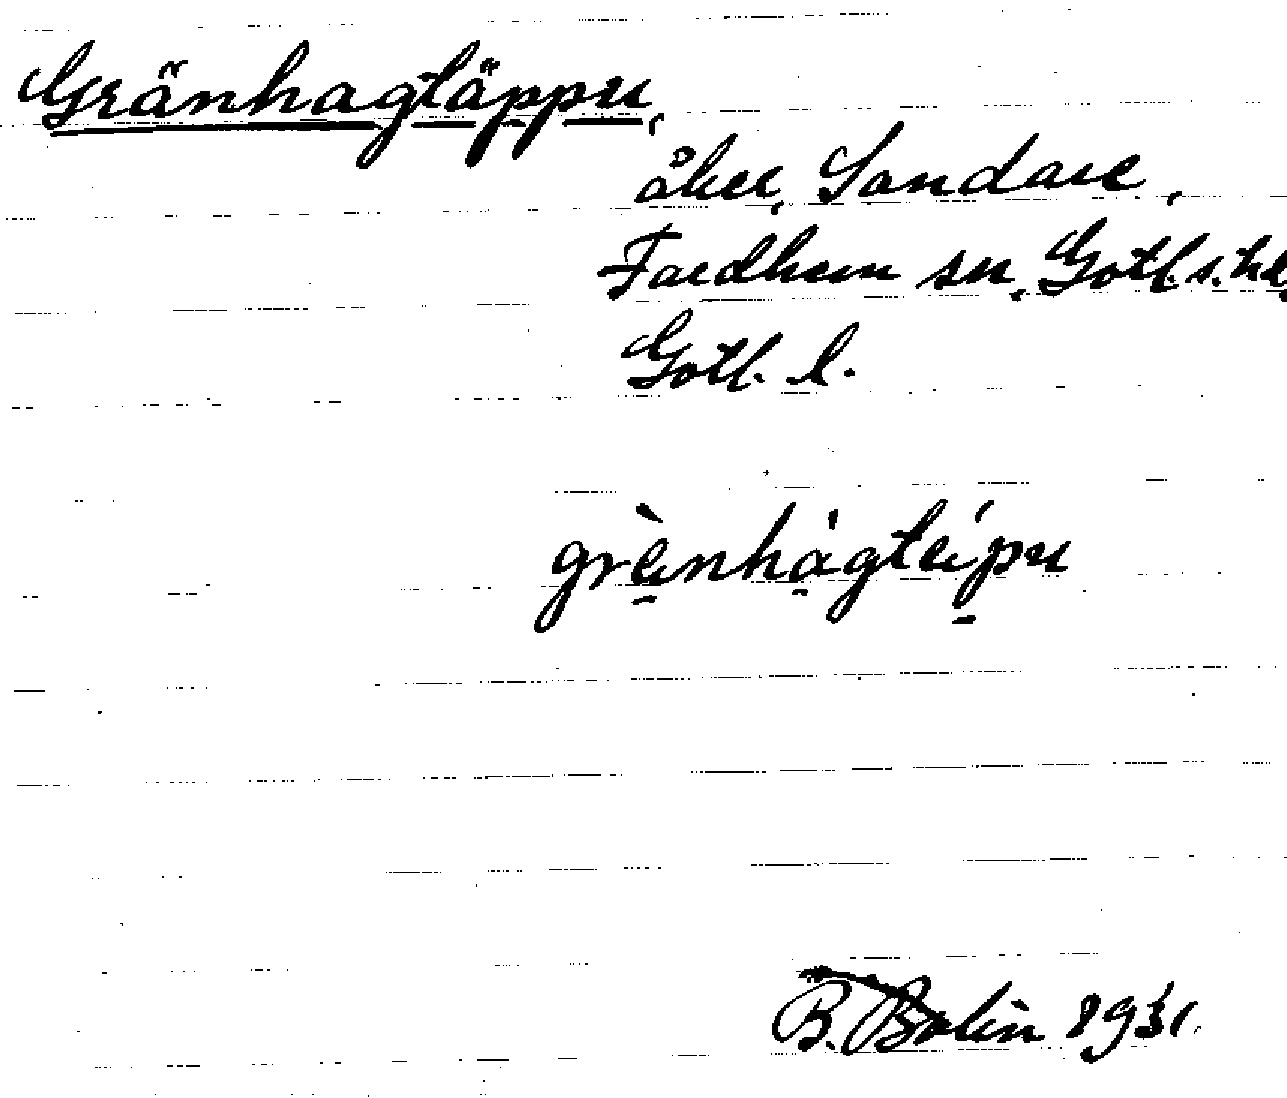 Gränhagtäppu,
åker, Sandare,
Fardhem sn, Gotl. s. hd,
Gotl. l.
grènhàgteípu
B. Bolin 1931.